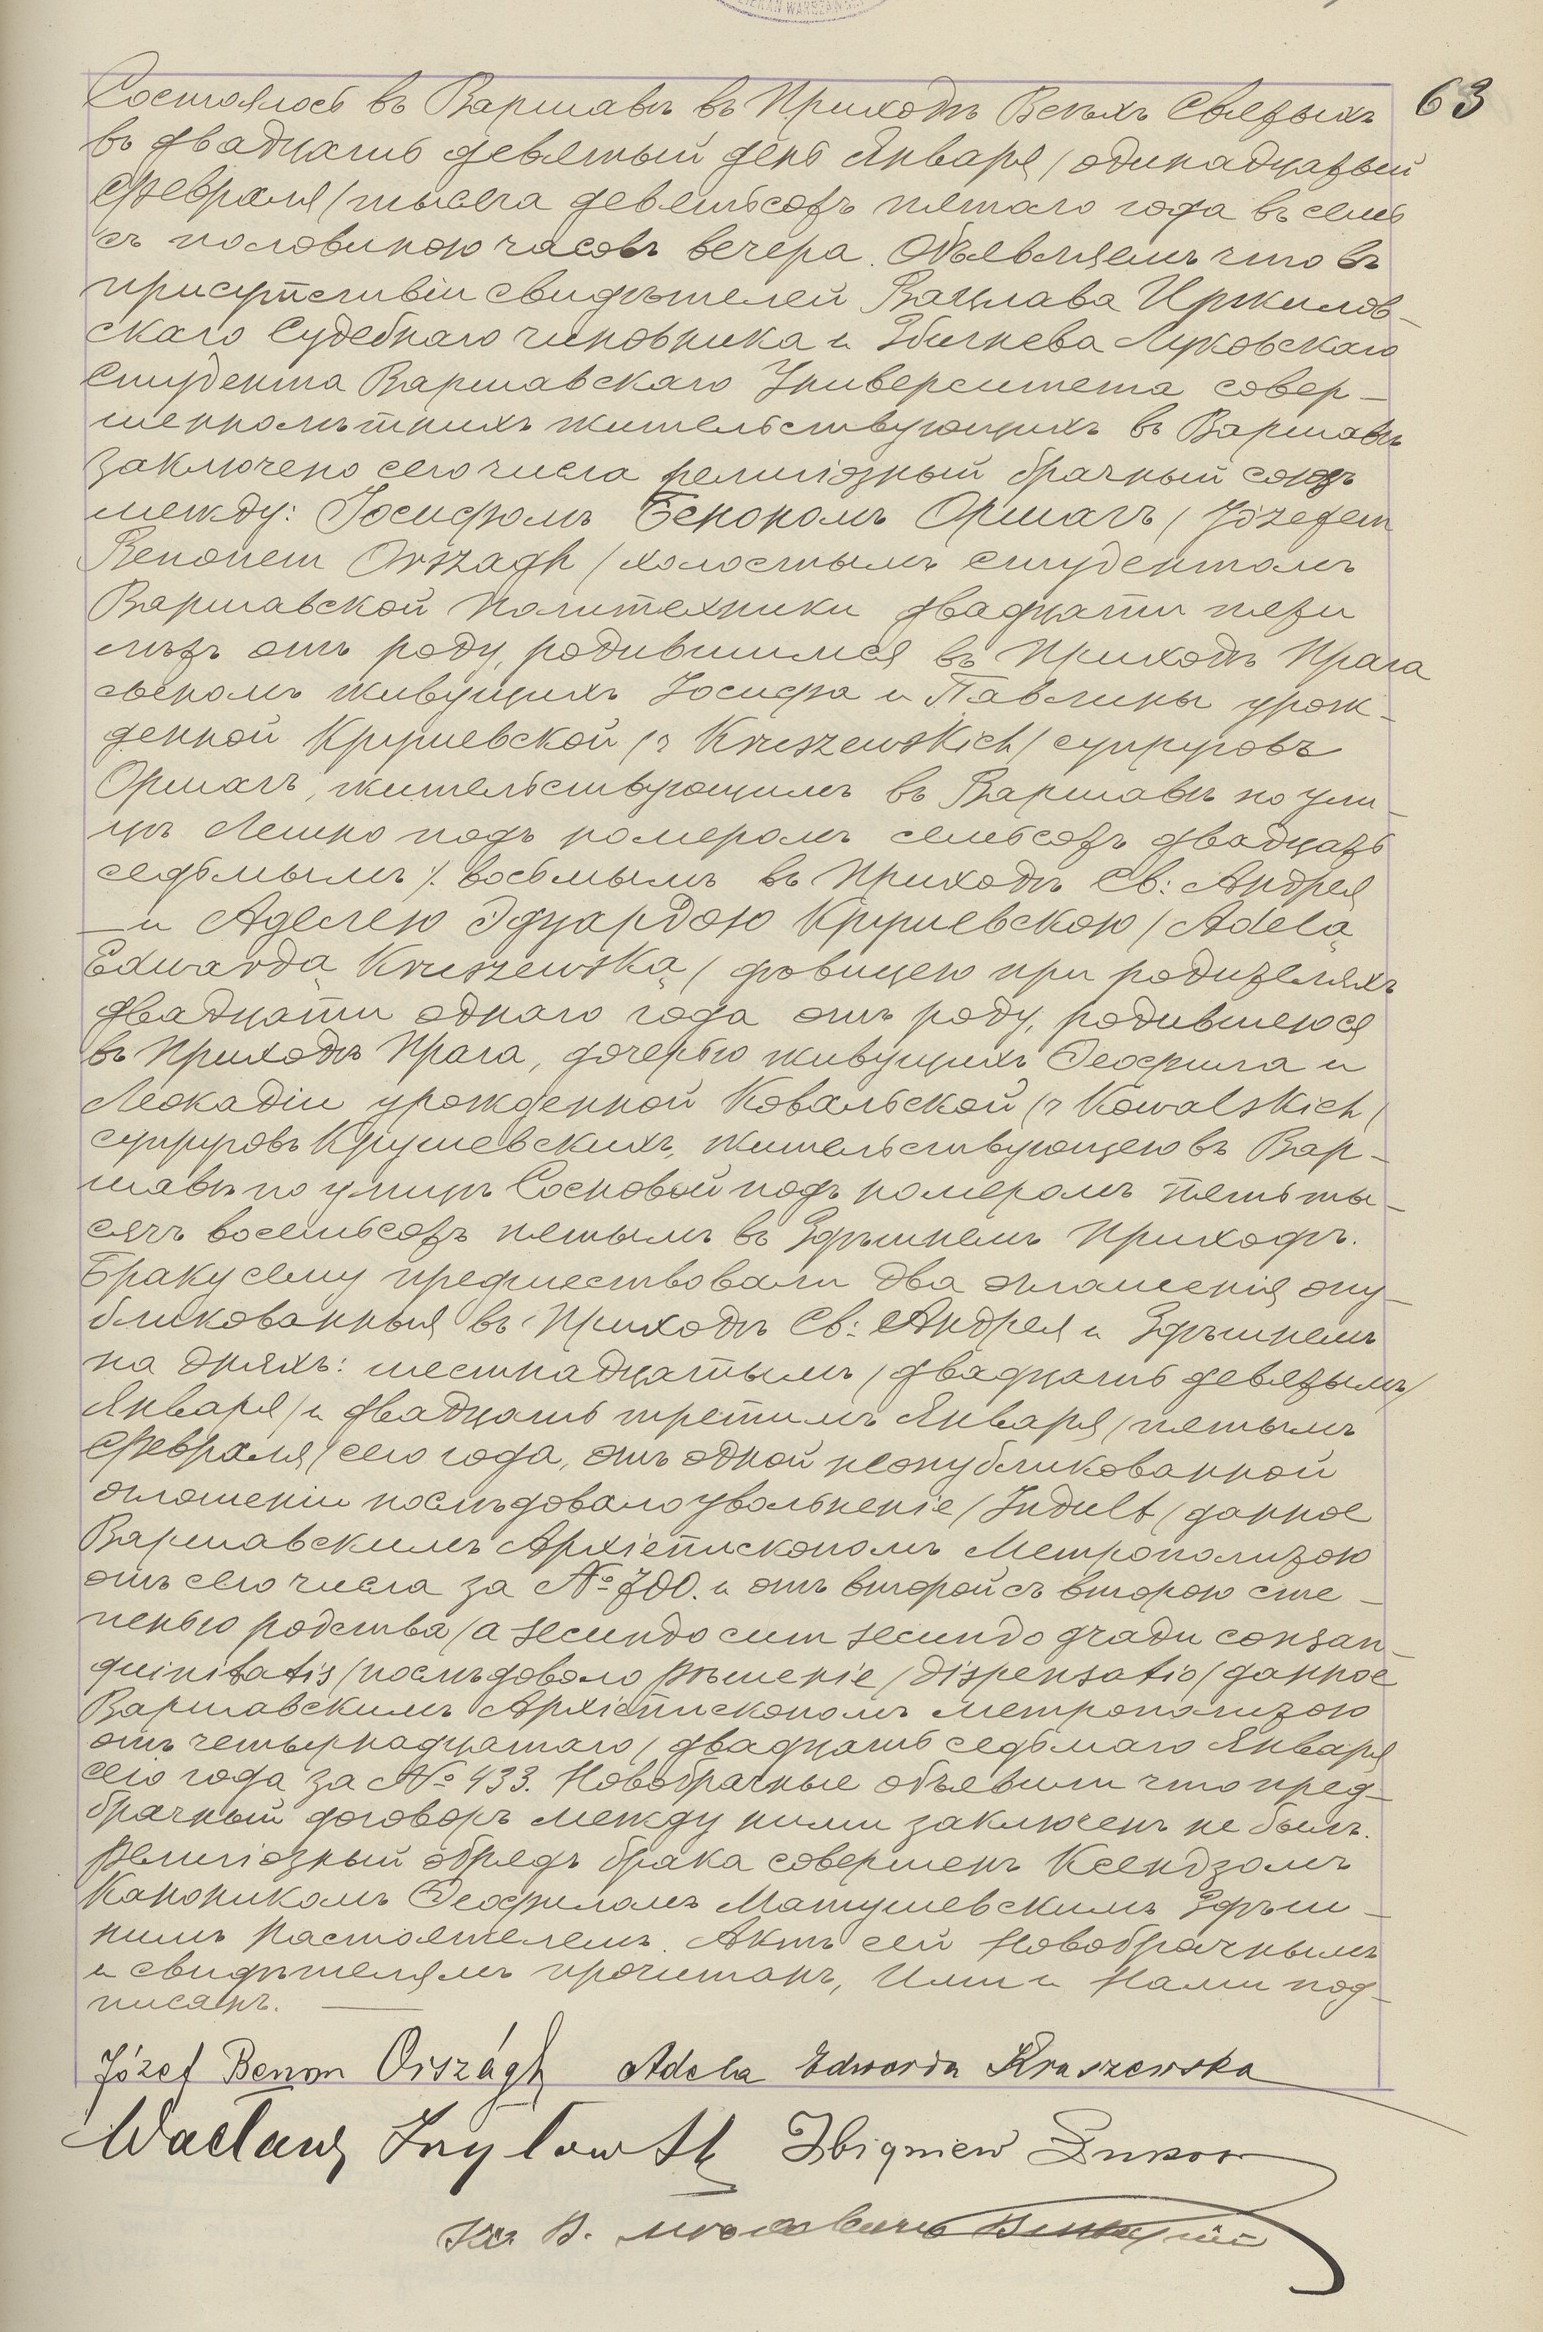 63
Состоялось въ Варшавѣ въ Приходѣ Всѣхъ Святыхъ
въ двадцать девятый день Января / одинадцатый
Февраля / тысяча девятьсотъ пятаго года въ семь
съ половиною часовъ вечера. Объявляемъ что въ
присутствіи свидѣтелей Вацлава
скаго Судебнаго чиновника и Збигнева Луковскаго
Студента Варшавскаго Университета совер-
шеннолѣтнихъ жительствующихъ въ Варшавѣ
заключено сего числа религіозный брачный союзъ
между: Іосифомъ Бенономъ Оршагъ / Józefem
Benonem Orszagh / холостымъ студентомъ
Варшавской Политехники двадцати пяти
лѣтъ отъ роду, родившимся въ Приходѣ Прага
сыномъ живущихъ Іосифа и Павлины урож-
денной Крушевской / z Kruszewskich / супруговъ
Оршагъ, жительствующимъ въ Варшавѣ по ули-
цѣ Лешно подъ номеромъ семьсотъ двадцать
седьмымъ /. восьмымъ въ Приходѣ Св: Андрея
— и Аделею Эдуардою Крушевскою / Adelą
Edwardą Kruszewską / дѣвицею при родителяхъ
двадцати одного года отъ роду, родившеюся
въ Приходѣ Прага, дочерью живущихъ Ѳеофила и
Леокадіи урожденной Ковальской / z Kowalskich /
супруговъ Крушевскихъ, жительствующею въ Вар-
шавѣ по улицѣ Сосновой подъ номеромъ пять ты-
сячъ восемьсотъ пятымъ въ Здѣшнемъ Приходѣ.
Браку сему предшествовали два оглашенія опу-
бликованныя въ Приходѣ Св: Андрея и Здѣшнемъ
на дняхъ: шестнадцатымъ / двадцать девятымъ /
Января / и двадцать третимъ Января / пятымъ
Февраля / сего года, отъ одной неопубликованной
оглошеніи послѣдовало увольненіе / Indult / данное
Варшавскимъ Архіепископомъ Метрополитою
отъ сего числа за № 700. и отъ второй съ второю сте-
пенью родства / a secundo cum secundo gradu consan-
guinitatis / послѣдовало рѣшеніе / dispensatio / данное
Варшавскимъ Архіепископомъ метрополитою
отъ четырнадцатаго / двадцать седьмаго Января
сего года за № 433. Новобрачные объявили что пред-
брачный договоръ между ними заключенъ не былъ.
Религіозный обрядъ брака совершенъ Ксендзомъ
Каноникомъ Ѳеофиломъ Матушевскимъ Здѣш-
нимъ Настоятелемъ. Актъ сей Новобрачнымъ
и свидѣтелямъ прочитанъ, Ими и Нами под-
писанъ.
Józef Benon Országh Adela Edwarda Kruszewska
Wacław Zbigniew